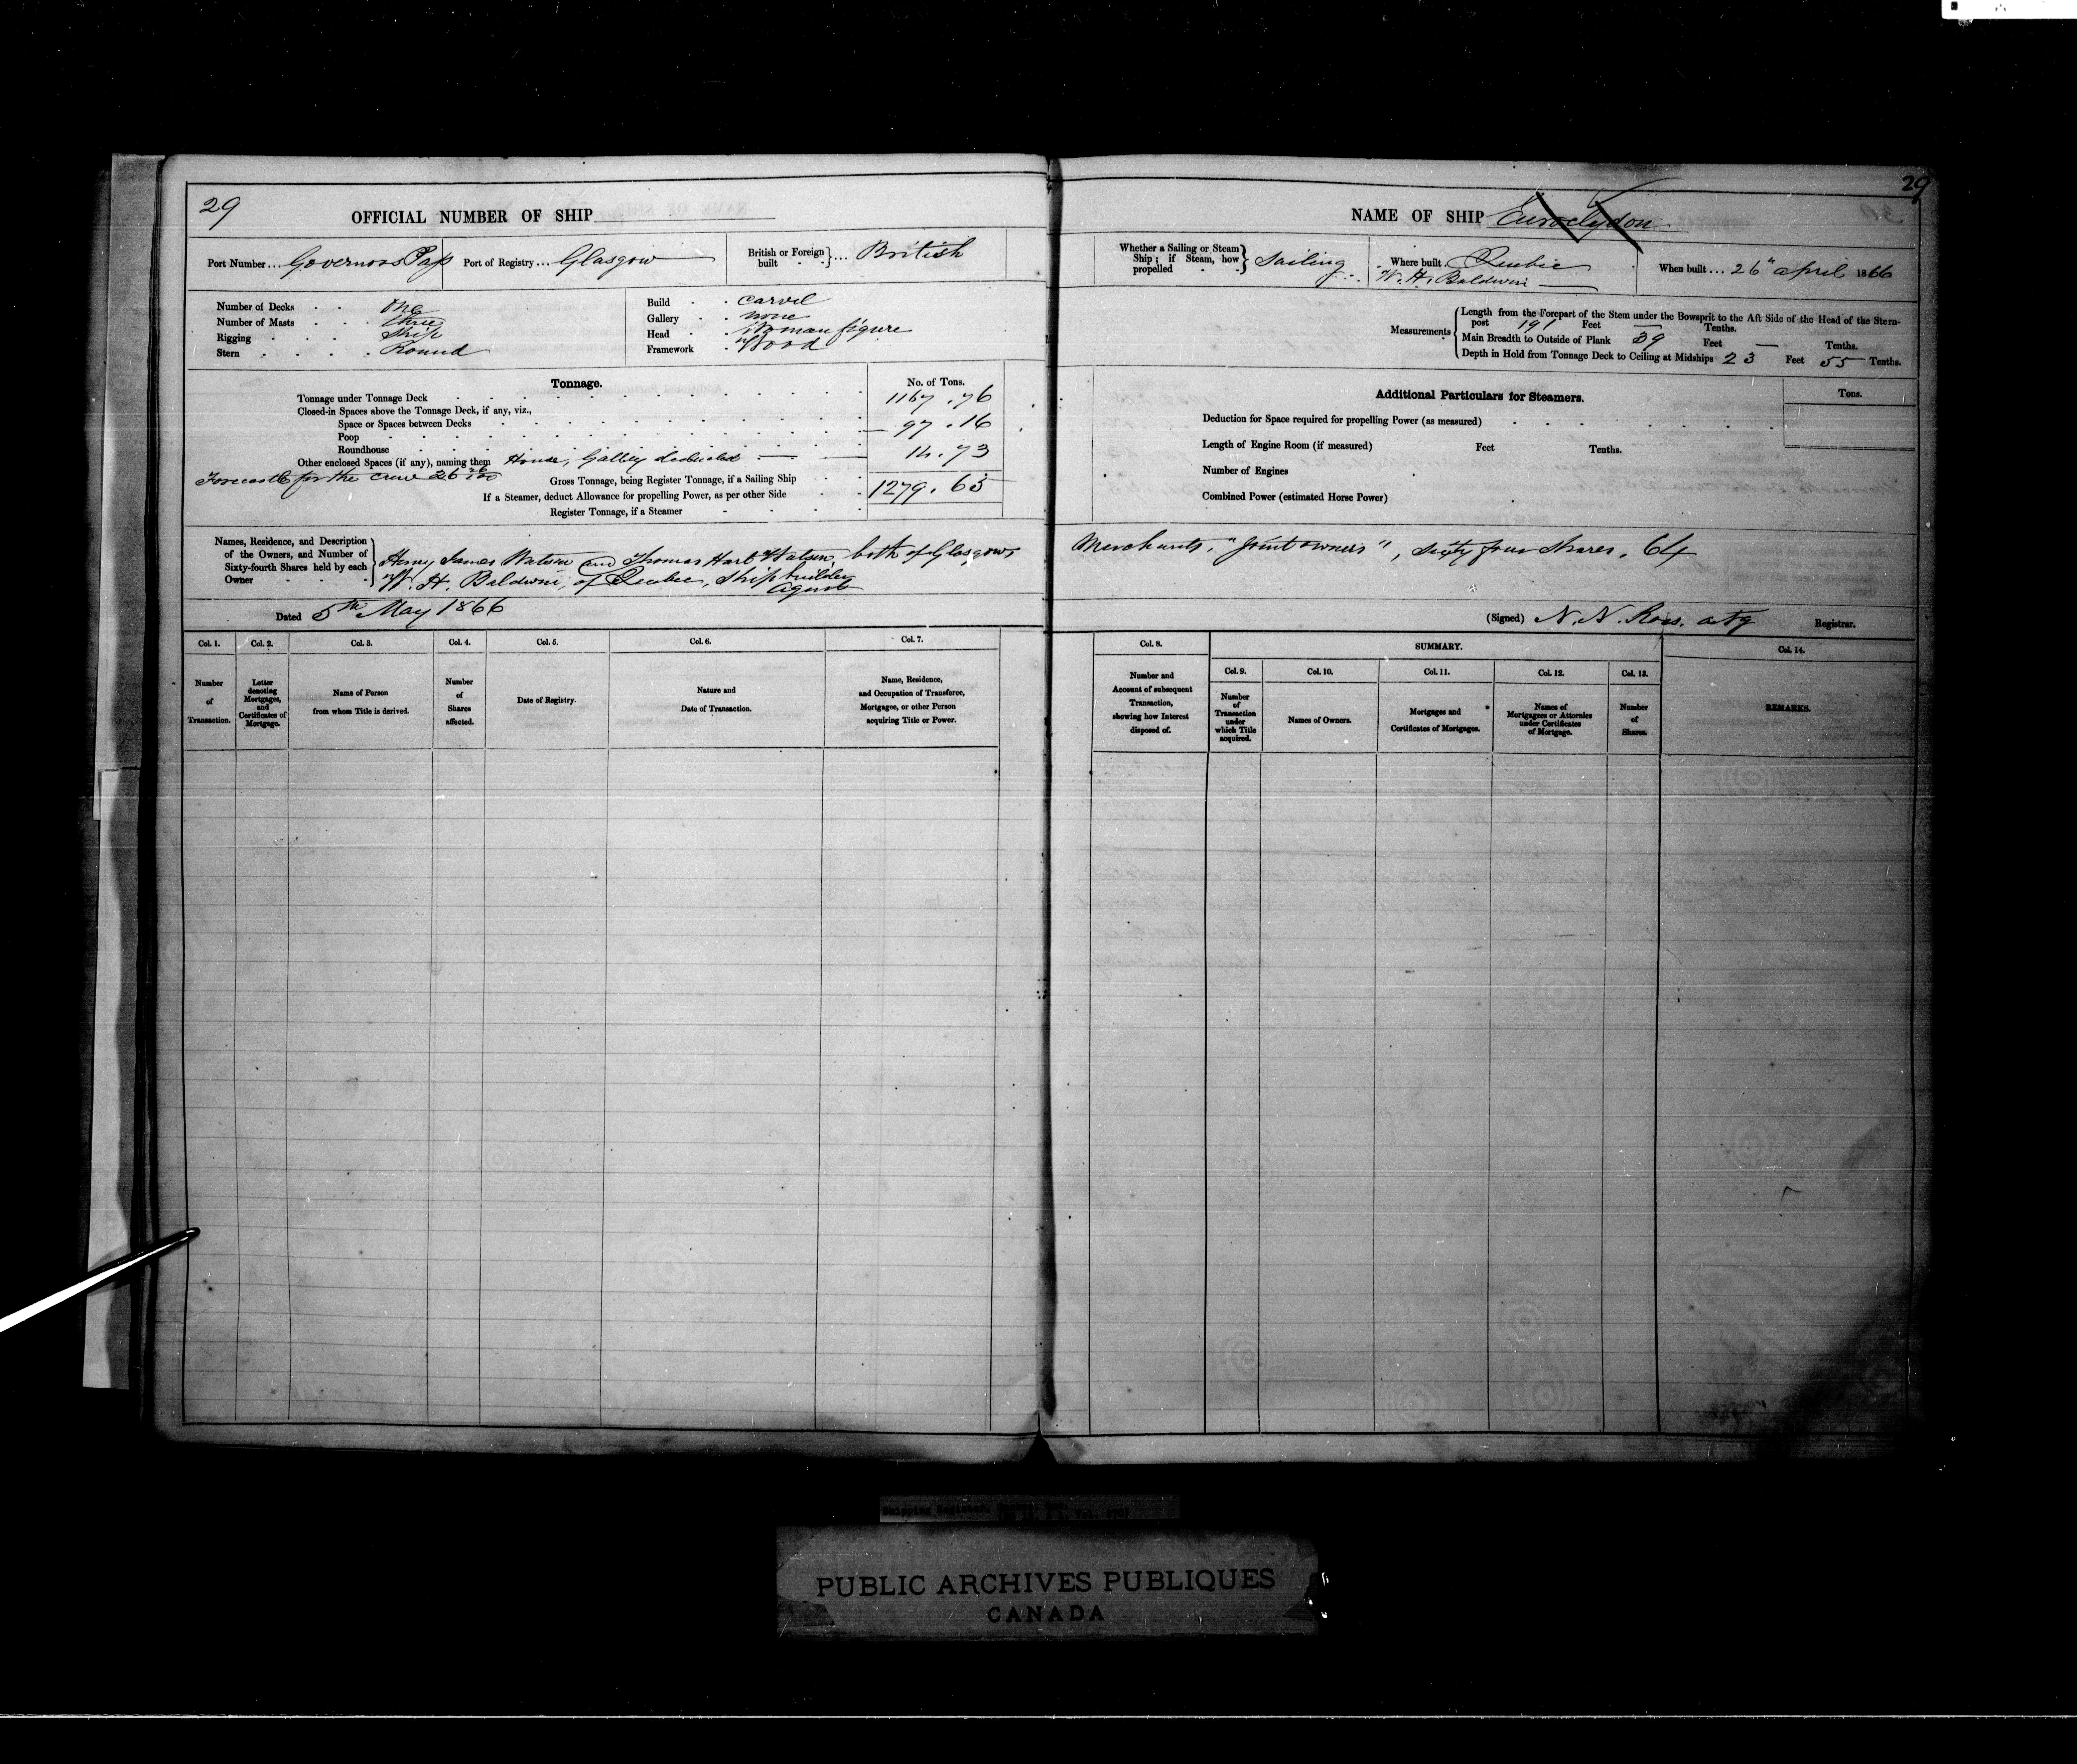 29
OFFICIAL NUMBER OF SHIP
Port Number... Governors Pass Port of Registry... Glasgow British or Foreign built ... British
Number of Decks One
Number of Masts three
Rigging Ship
Stern Round
Build carvel
Gallery none
Head Woman figure
Framework Wood
Tonnage. No. of Tons.
Tonnage under Tonnage Deck 1167.76
Closed-in Spaces above the Tonnage Deck, if any, viz.,
Space or Spaces between Decks
Poop 97.16
Roundhouse
Other enclosed Spaces (if any), naming them House, Galley deducted 14.73
Forecastle for the crew 26 26/100 Gross Tonnage, being Register Tonnage, if a Sailing Ship 1279.65
If a Steamer, deduct Allowance for propelling Power, as per other Side
Register Tonnage, if a Steamer
Names, Residence, and Description of the Owners, and Number of Sixty-fourth Shares held by each Owner
Henry James Watson and Thomas Hart Watson, both of Glasgow,
W. H. Baldwin, of Quebec, Ship builder
Agent
Dated 5th May 1866
Col. 1. Col. 2. Col. 3. Col. 4. Col. 5. Col. 6. Col. 7.
Number of Transaction.
Letter denoting Mortgages, and Certificates of Mortgage.
Name of Person from whom Title is derived.
Number of Shares affected.
Date of Registry.
Nature and Date of Transaction.
Name, Residence, and Occupation of Transferee, Mortgagee, or other Person acquiring Title or Power.
29
NAME OF SHIP Euroclydon
Whether a Sailing or Steam Ship; if Steam, how propelled Sailing Where built Quebec When built... 26" april 1866
W. H. Baldwin
Measurements
Length from the Forepart of the Stem under the Bowsprit to the Aft Side of the Head of the Stern-
post 191 Feet — Tenths.
Main Breadth to Outside of Plank 39 Feet — Tenths.
Depth in Hold from Tonnage Deck to Ceiling at Midships 23 Feet 55 Tenths.
Additional Particulars for Steamers. Tons.
Deduction for Space required for propelling Power (as measured)
Length of Engine Room (if measured) Feet Tenths.
Number of Engines
Combined Power (estimated Horse Power)
Merchants, "Joint owners", sixty four shares, 64
(Signed) N. N. Ross. actg Registrar.
Col. 8. SUMMARY. Col. 14.
Col. 9. Col. 10. Col. 11. Col. 12. Col. 13.
Number and Account of subsequent Transaction, showing how Interest disposed of.
Number of Transaction under which Title acquired.
Names of Owners.
Mortgages and Certificates of Mortgages.
Names of Mortgagees or Attornies under Certificates of Mortgage.
Number of Shares.
REMARKS.
Shipping Register,
PUBLIC ARCHIVES PUBLIQUES
CANADA